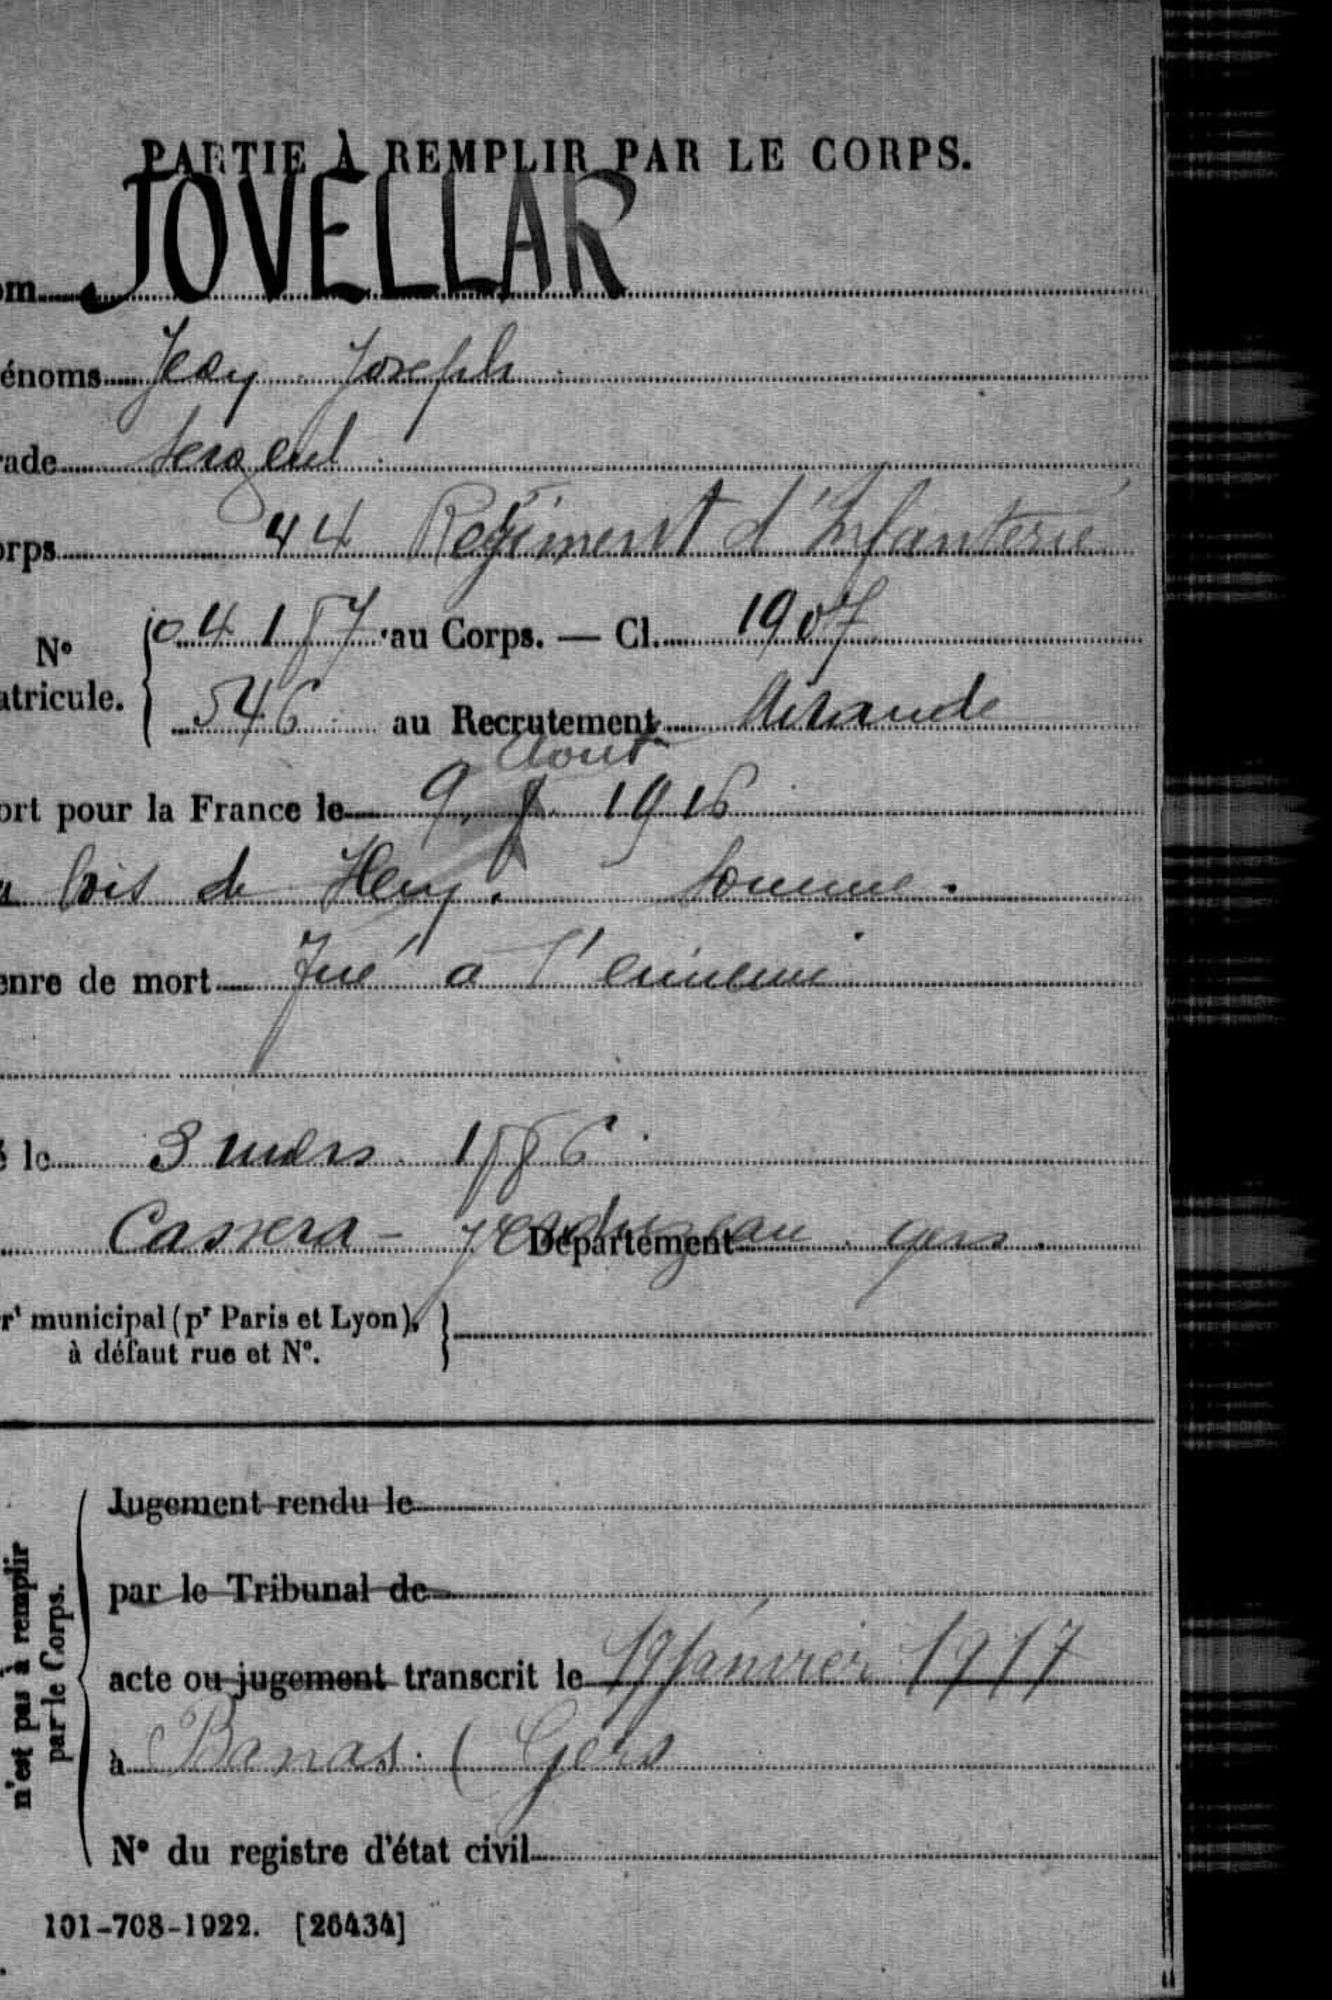 PARTIE À REMPLIR PAR LE CORPS.
om JOVELLAR
énoms Jean Joseph
rade Sergent
orps 44 Régiment d'Infanterie
N° atricule. 04187 au Corps. — Cl. 1907
546 au Recrutement Mirande
Aout
ort pour la France le 9 8 1916
bois de Hem. Somme.
enre de mort Tué à l'ennemi
é le 3 mars 1886
Cassera - Verduzan Département Gers.
r^t municipal (p^r Paris et Lyon),
à défaut rue et N°.
n'est pas à remplir
par le Corps.
Jugement rendu le
par le Tribunal de
acte ou jugement transcrit le 19 Janvier 1917
à (Gers
N° du registre d'état civil
101-708-1922. [26434]